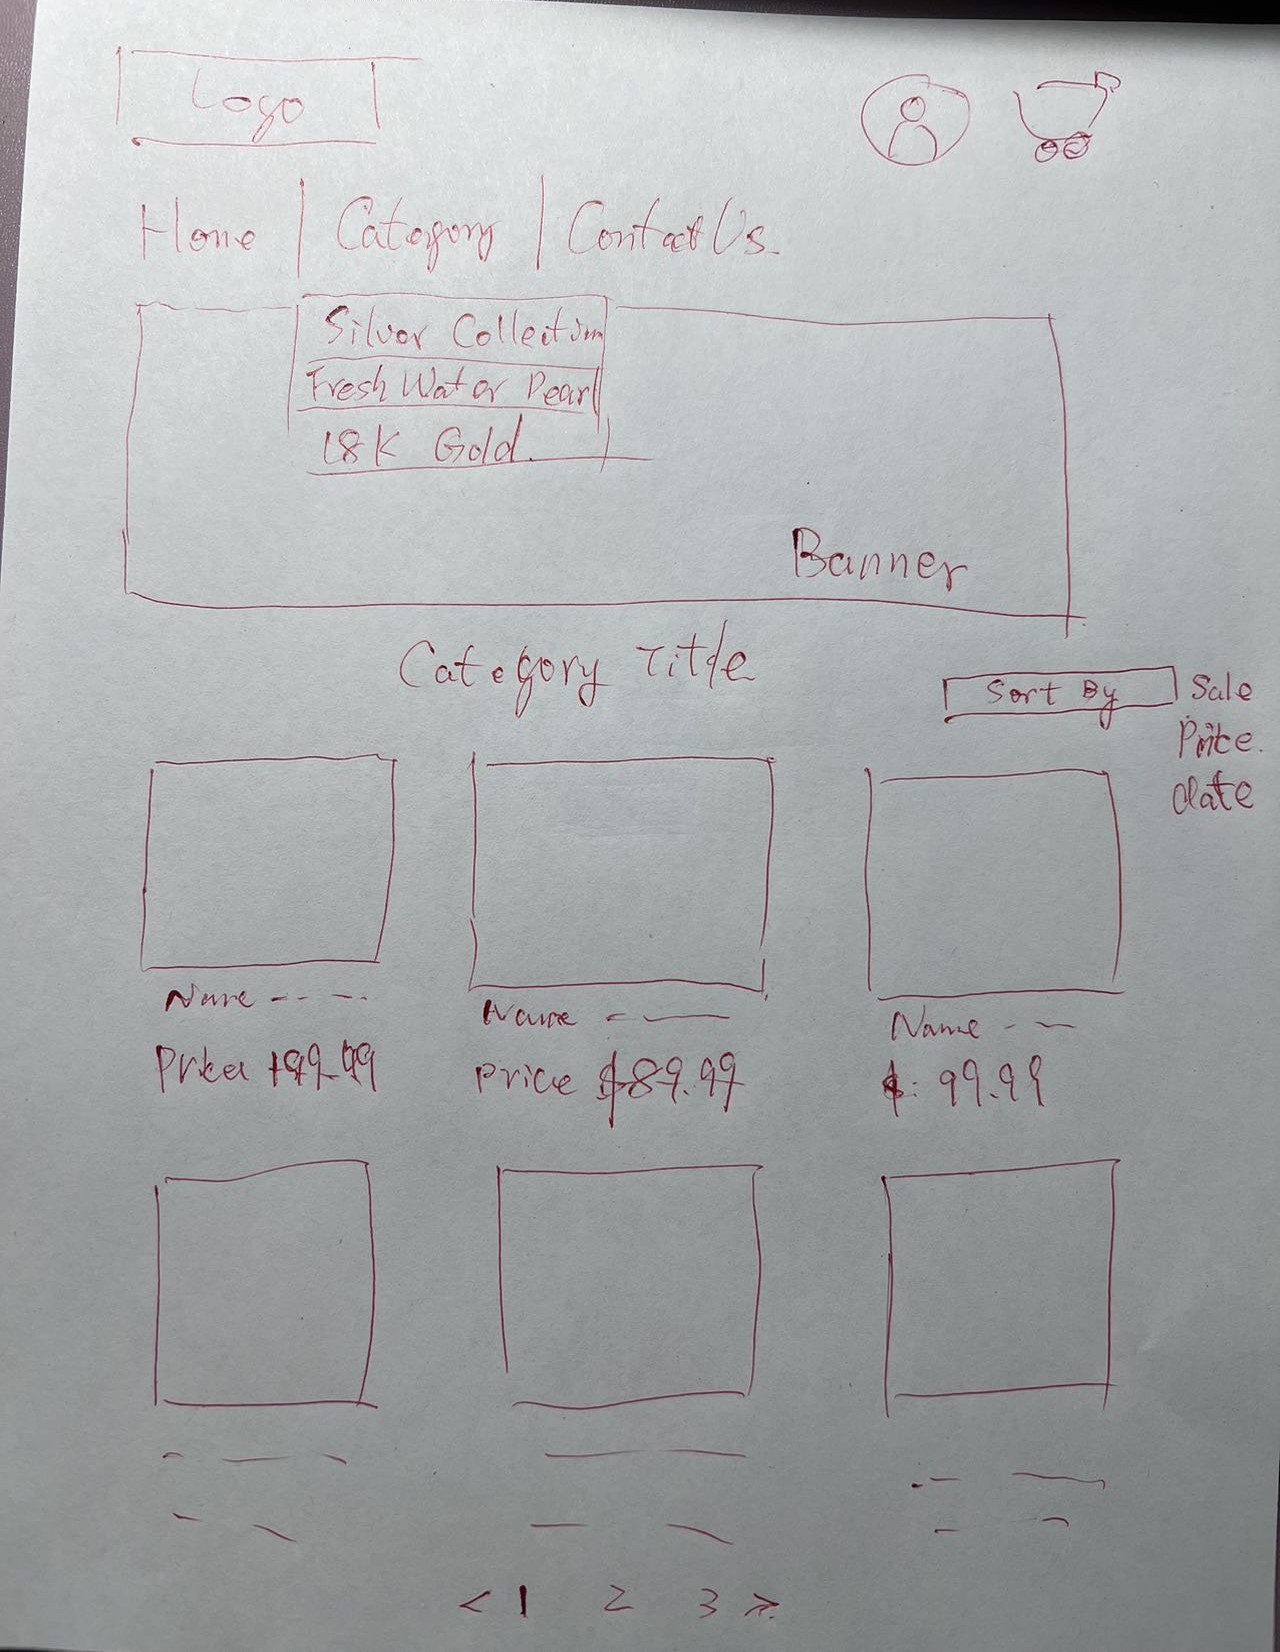 Logo
Home | Category | Contact Us
Silver Collection
Fresh Water Pearl
18K Gold.
Banner
Category Title
Sort By
Sale
Price.
date
Name
Name
Name
Price $89.99
$: 99.99
< 1 2 3 >